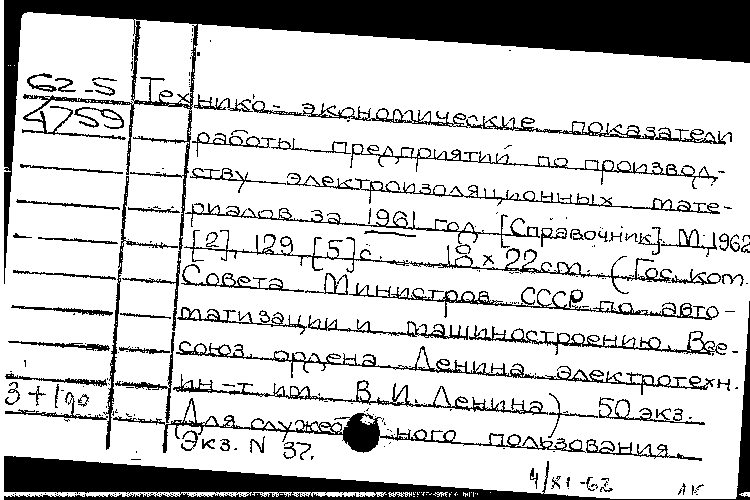 62-5 Технико-экономические показатели
4759 работы предприятий по производ-
ству электроизоляционных мате-
риалов за 1961 год. [Справочник]. М, 1962
[2], 129, [5] с. 18 x 22 cm. (Гос. ком.
Совета Министров СССР по авто-
матизации и машиностроению. Все-
союз. ордена Ленина электротехн.
ин-т им. В.И. Ленина) 50 экз.
(Для служебного пользования.
Экз. N 37.
4/XI-62 ЛК